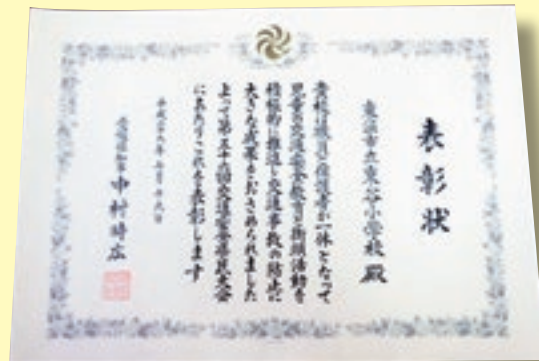 表彰状
東温市立東谷小学校殿
貴校は職員と保護者が一体となって
児童の交通安全教育と街頭活動を
積極的に推進し交通事故の防止に
大きな成果をおさめられました
よって第五十回交通安全県民大会
にあたりこれを表彰します
愛媛県知事 中村時広